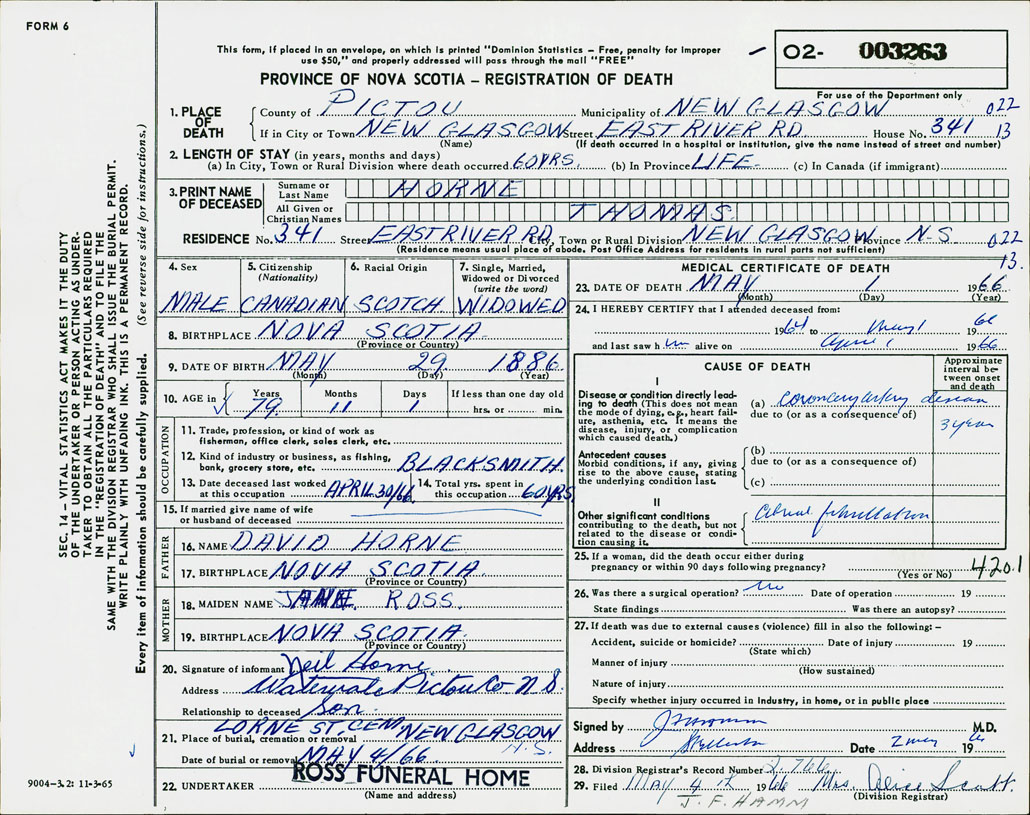 FORM 6
This form, if placed in an envelope, on which is printed "Dominion Statistics – Free, penalty for improper
use $50," and properly addressed will pass through the mail "FREE"
O2- 003263
PROVINCE OF NOVA SCOTIA – REGISTRATION OF DEATH
For use of the Department only
1. PLACE OF DEATH County of PICTOU Municipality of NEW GLASGOW 022
If in City or Town NEW GLASGOW Street EAST RIVER RD House No. 341 13
(Name) (If death occurred in a hospital or institution, give the name instead of street and number)
2. LENGTH OF STAY (in years, months and days)
(a) In City, Town or Rural Division where death occurred 60 YRS. (b) In Province LIFE (c) In Canada (if immigrant)
3. PRINT NAME OF DECEASED Surname or Last Name HORNE
All Given or Christian Names THOMAS
RESIDENCE No. 341 Street EAST RIVER RD City, Town or Rural Division NEW GLASGOW Province N.S. 022
(Residence means usual place of abode. Post Office Address for residents in rural parts not sufficient) 13.
SEC. 14 – VITAL STATISTICS ACT MAKES IT THE DUTY
OF THE UNDERTAKER OR PERSON ACTING AS UNDER-
TAKER TO OBTAIN ALL THE PARTICULARS REQUIRED
IN THE "REGISTRATION OF DEATH" AND TO FILE THE
SAME WITH THE DIVISION REGISTRAR WHO SHALL ISSUE THE BURIAL PERMIT.
WRITE PLAINLY WITH UNFADING INK. THIS IS A PERMANENT RECORD.
Every item of information should be carefully supplied. (See reverse side for instructions.)
4. Sex 5. Citizenship (Nationality) 6. Racial Origin 7. Single, Married, Widowed or Divorced (write the word)
MALE CANADIAN SCOTCH WIDOWED
8. BIRTHPLACE NOVA SCOTIA
(Province or Country)
9. DATE OF BIRTH MAY 29 1886
(Month) (Day) (Year)
10. AGE in Years Months Days If less than one day old
79 11 1 hrs. or min.
OCCUPATION
11. Trade, profession, or kind of work as
fisherman, office clerk, sales clerk, etc.
12. Kind of industry or business, as fishing,
bank, grocery store, etc. BLACKSMITH.
13. Date deceased last worked at this occupation APRIL 30/66 14. Total yrs. spent in this occupation 60 YRS
15. If married give name of wife
or husband of deceased
FATHER
16. NAME DAVID HORNE
17. BIRTHPLACE NOVA SCOTIA
(Province or Country)
MOTHER
18. MAIDEN NAME ROSS.
19. BIRTHPLACE NOVA SCOTIA
(Province or Country)
20. Signature of informant Neil Horne
Address Watervale Pictou Co N S.
Relationship to deceased Son
LORNE ST. CEM. NEW GLASGOW
21. Place of burial, cremation or removal N.S.
Date of burial or removal MAY 4/66
22. UNDERTAKER ROSS FUNERAL HOME
(Name and address)
MEDICAL CERTIFICATE OF DEATH
23. DATE OF DEATH MAY 1 1966
(Month) (Day) (Year)
24. I HEREBY CERTIFY that I attended deceased from:
1964 to May 1 1966
and last saw h im alive on April 1 1966
CAUSE OF DEATH
Approximate interval between onset and death
I
Disease or condition directly lead-
ing to death (This does not mean
the mode of dying, e.g., heart fail-
ure, asthenia, etc. It means the
disease, injury, or complication
which caused death.)
(a) coronary artery disease
due to (or as a consequence of)
3 year
Antecedent causes
Morbid conditions, if any, giving
rise to the above cause, stating
the underlying condition last.
(b)
due to (or as a consequence of)
(c)
II
Other significant conditions
contributing to the death, but not
related to the disease or condi-
tion causing it.
25. If a woman, did the death occur either during
pregnancy or within 90 days following pregnancy? 420.1
(Yes or No)
26. Was there a surgical operation? no Date of operation 19
State findings Was there an autopsy?
27. If death was due to external causes (violence) fill in also the following: –
Accident, suicide or homicide? Date of injury 19
(State which)
Manner of injury
(How sustained)
Nature of injury
Specify whether injury occurred in industry, in home, or in public place
Signed by M.D.
Address Stellarton Date 2 May 1966
28. Division Registrar's Record Number 2,766
29. Filed MAY 4 1966 Mrs. Alice Scott
(Division Registrar)
J. F. HAMM
9004-3.2: 11-3-65